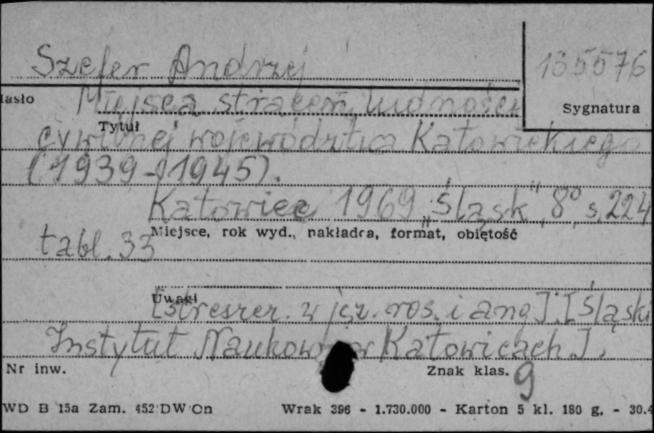 Szefer Andrzej
135576
Hasło
Miejsca straceń ludności
Sygnatura
Tytuł
cywilnej województwa Katowickiego
(1939-1945).
Katowice 1969 „Śląsk" 8° s. 224
Miejsce, rok wyd., nakładca, format, objętość
tabl. 33
Uwagi
[streszcz. w jęz. ros. i ang.]. [Śląski
Instytut Naukowy w Katowicach].
Nr inw.
Znak klas. 9
WD B 15a Zam. 452 DW On
Wrak 396 - 1.730.000 - Karton 5 kl. 180 g. - 30.4